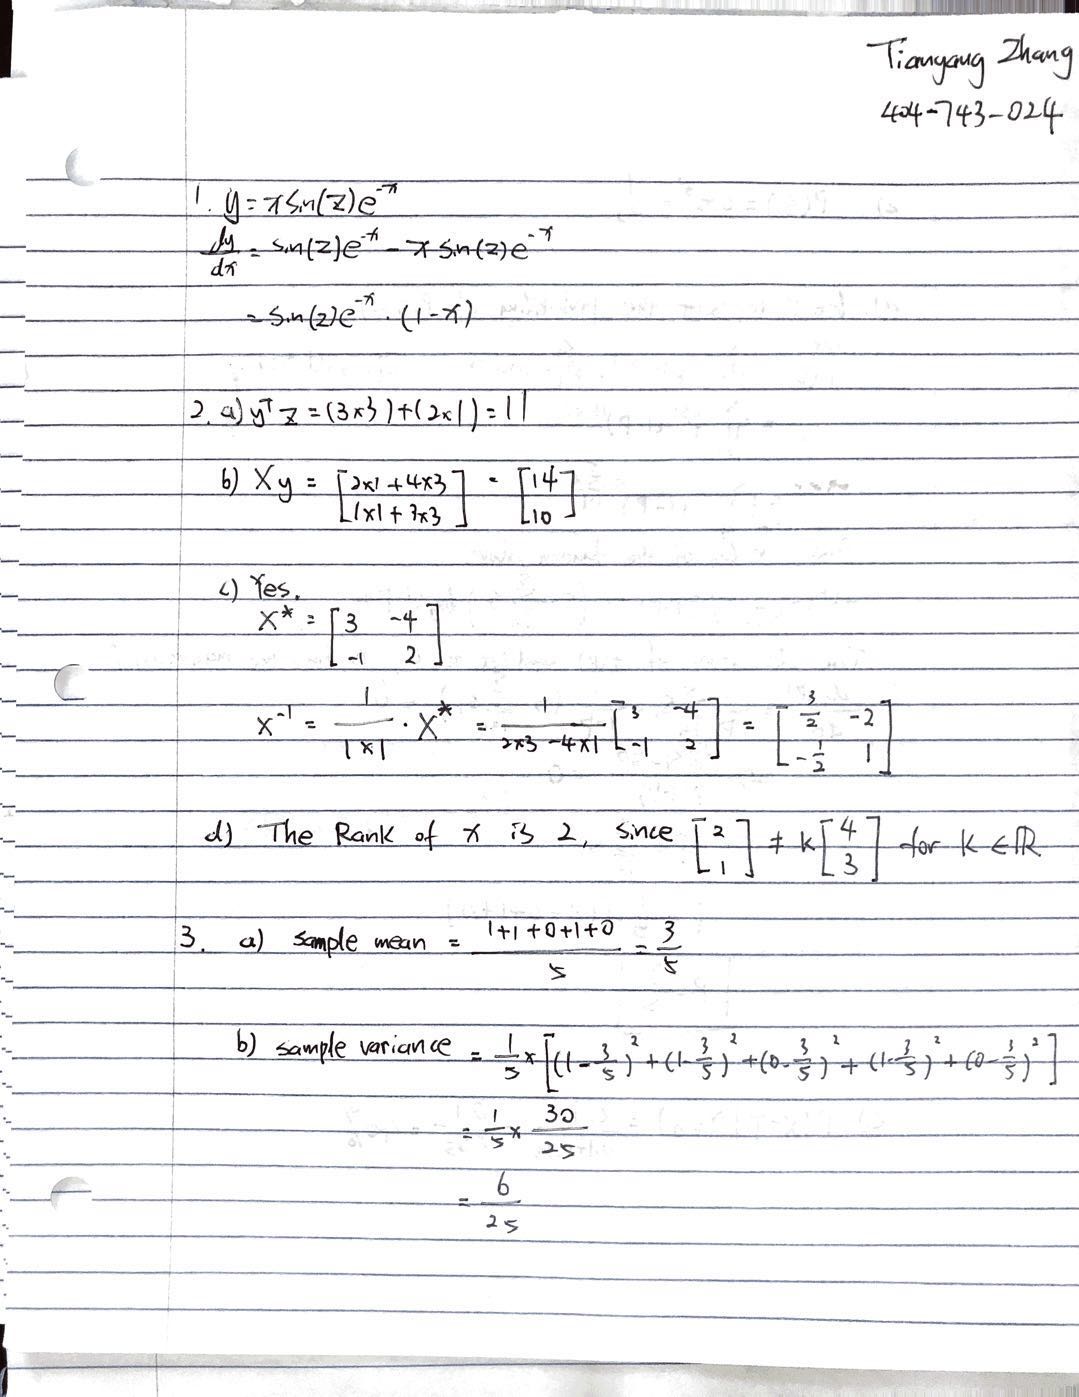 Tianyang Zhang
404-743-024
1. y = x sin(z) e^{-x}
dy/dx = sin(z) e^{-x} - x sin(z) e^{-x}
= sin(z) e^{-x} · (1-x)
2. a) y^T z = (3×3) + (2×1) = 11
b) Xy = [2×1 + 4×3; 1×1 + 3×3] = [14; 10]
c) Yes.
X* = [3 -4; -1 2]
X^{-1} = 1/|X| · X* = 1/(2×3 - 4×1) [3 -4; -1 2] = [3/2 -2; -1/2 1]
d) The Rank of X is 2, since [2; 1] ≠ k[4; 3] for k ∈ ℝ
3. a) sample mean = (1+1+0+1+0)/5 = 3/5
b) sample variance = 1/5 × [(1-3/5)^2 + (1-3/5)^2 + (0-3/5)^2 + (1-3/5)^2 + (0-3/5)^2]
= 1/5 × 30/25
= 6/25